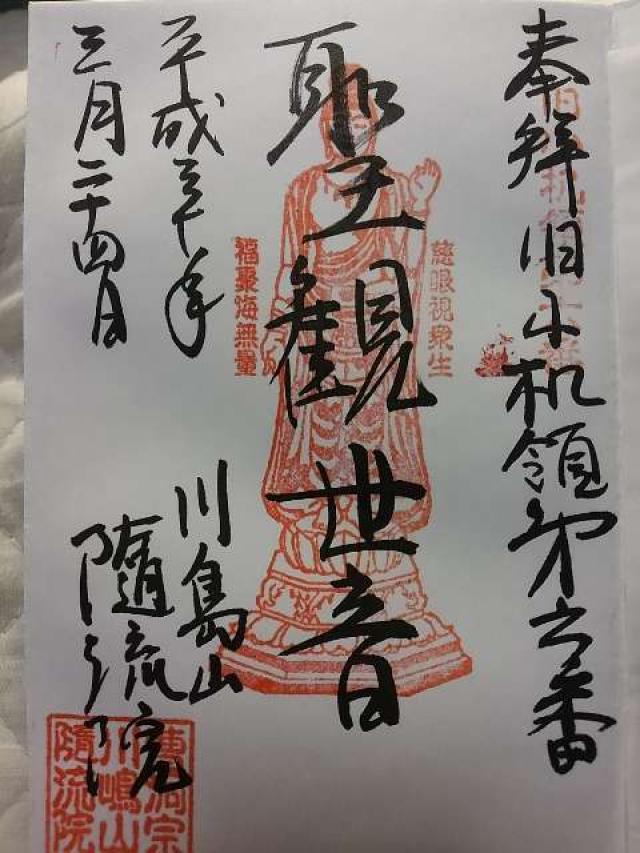 奉拝旧小机領第六番
慈眼視衆生
聖観世音
福聚海無量
平成三十年
三月二十四日
川島山
隨流院
曹洞宗
川嶋山
隨流院